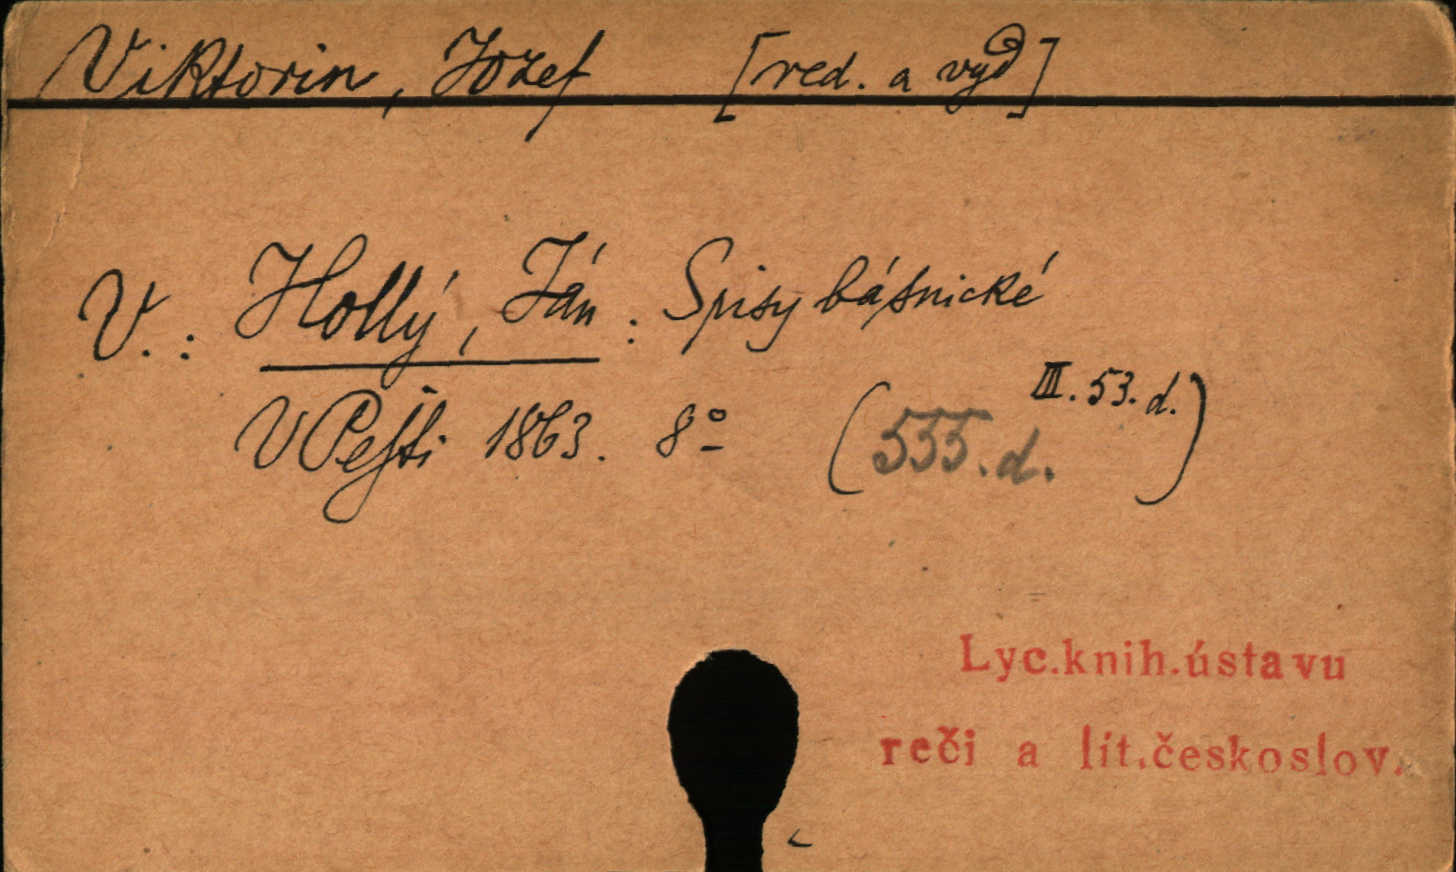 Viktorin, Jozef [red. a vyd]
V.: Hollý, Ján: Spisy básnické
V Pešti 1863. 8º (555.d. III.53.d.)
Lyc.knih.ústavu
reči a lit.českoslov.